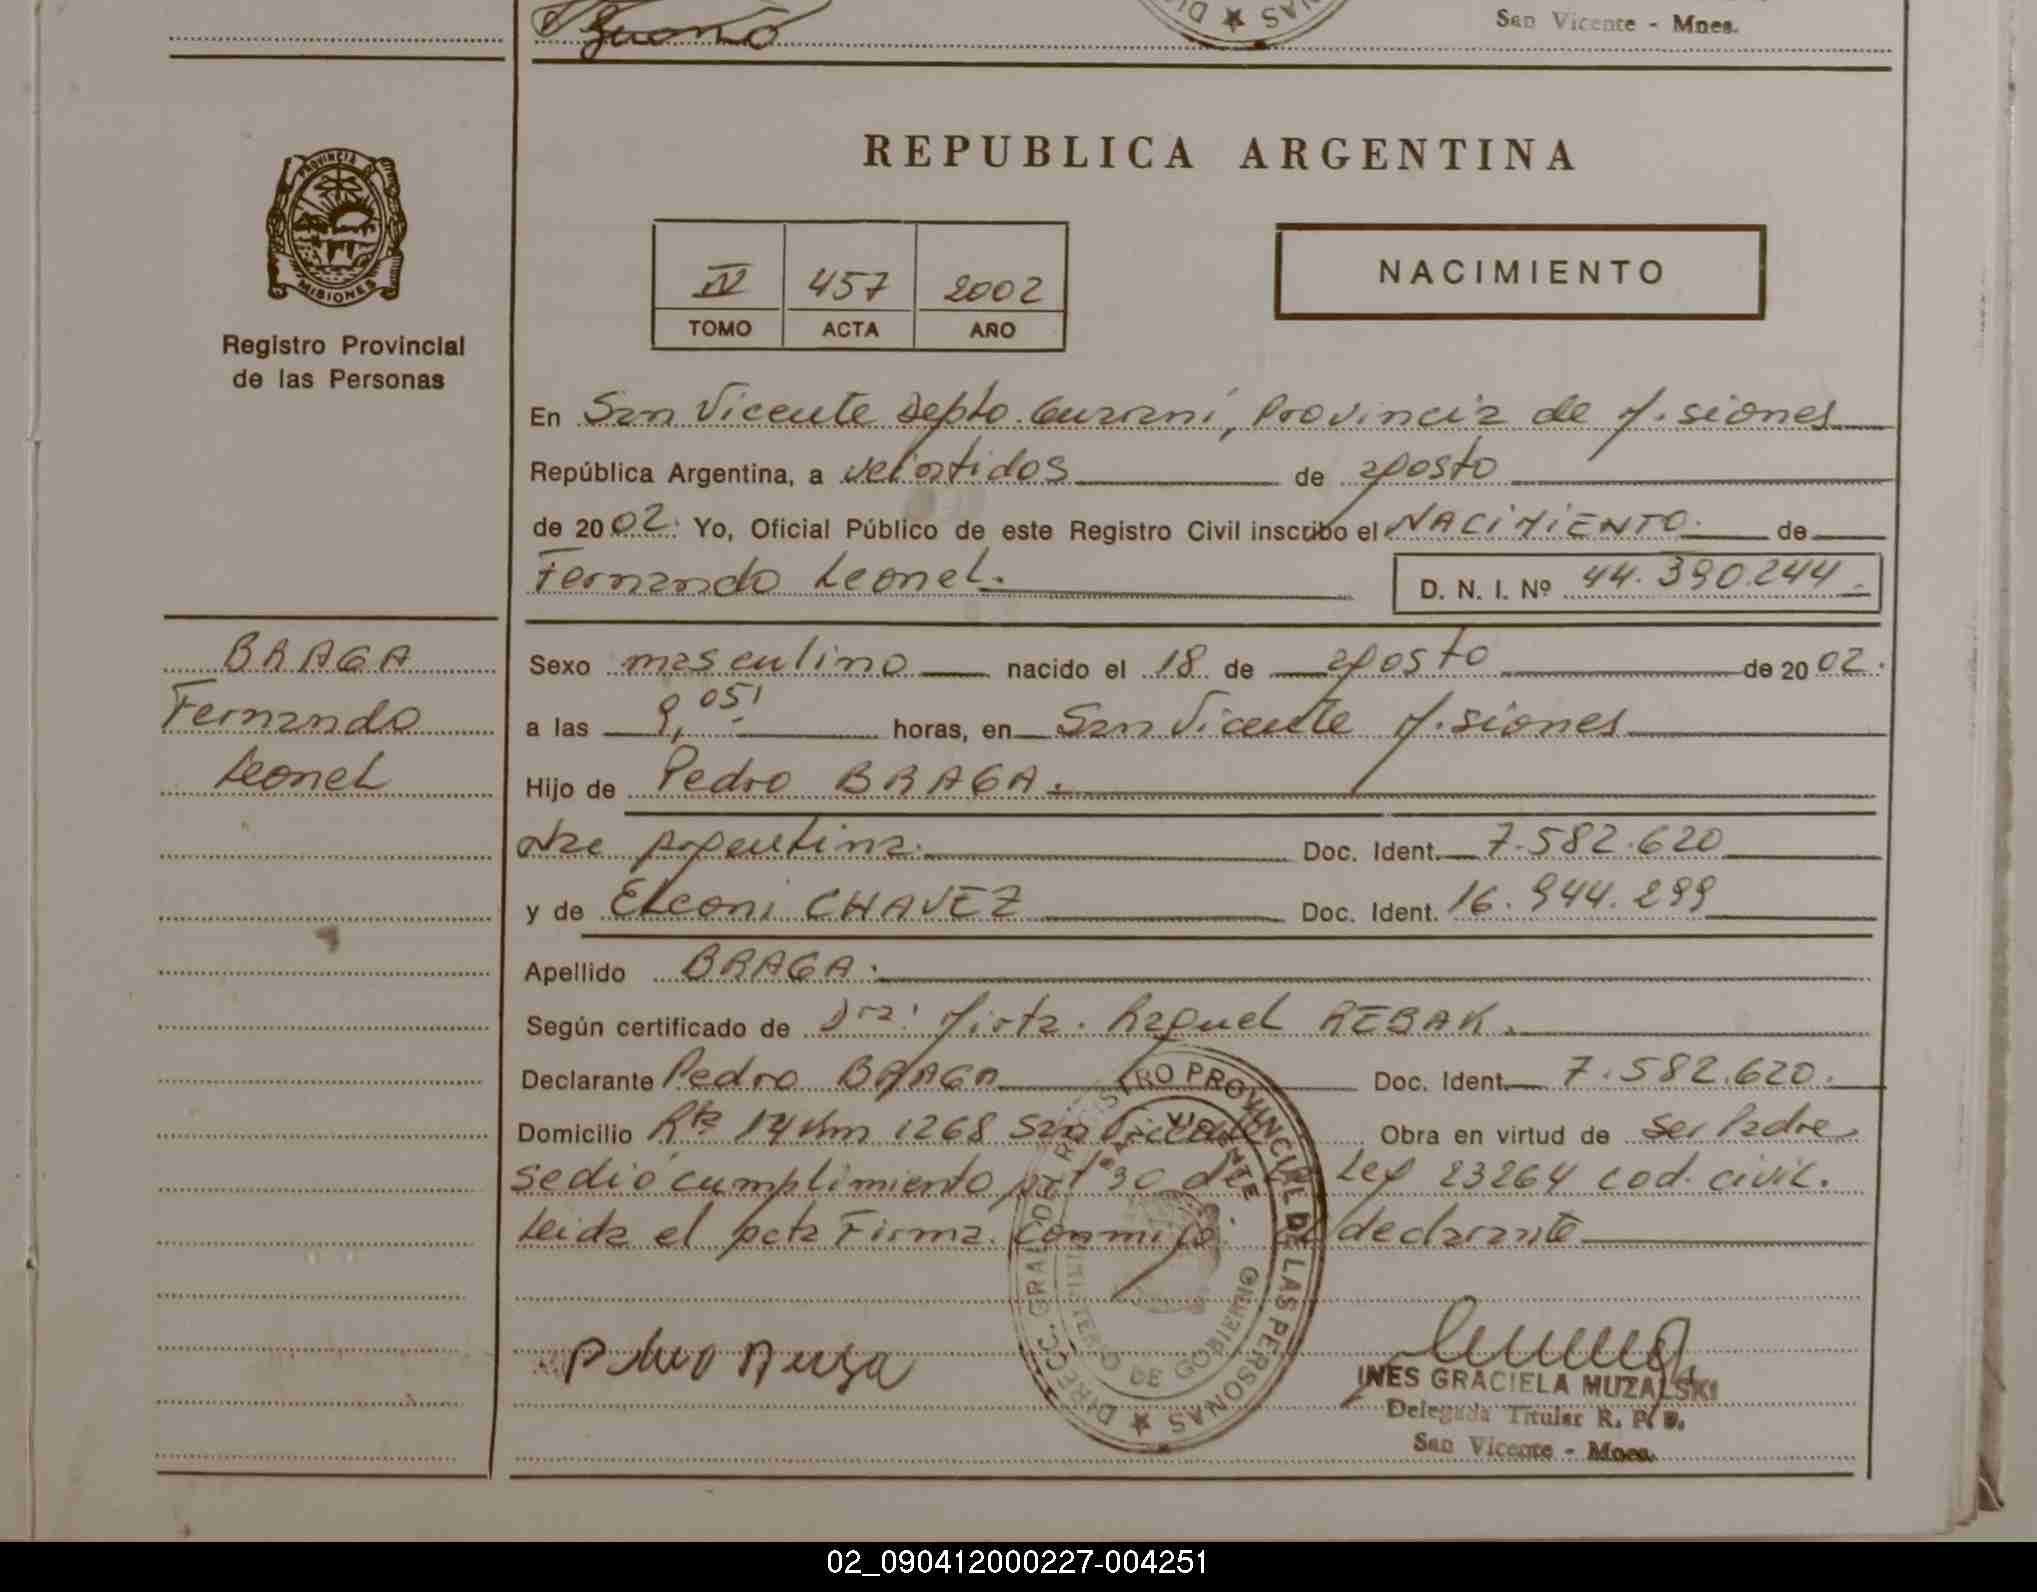 San Vicente - Mnes.
REPUBLICA ARGENTINA
PROVINCIA DE MISIONES
Registro Provincial
de las Personas
IV 457 2002
TOMO ACTA AÑO
NACIMIENTO
En San Vicente Depto. Guarani, Provincia de Misiones
República Argentina, a veintidos de agosto
de 2002. Yo, Oficial Público de este Registro Civil inscribo el NACIMIENTO. de
Fernando Leonel. D. N. I. Nº 44.390.244.
BRAGA
Fernando
Leonel
Sexo masculino nacido el 18 de agosto de 2002.
a las 9,05' horas, en San Vicente Misiones
Hijo de Pedro BRAGA.
Nac Argentina. Doc. Ident. 7.582.620
y de Elconi CHAVEZ Doc. Ident. 16.944.299
Apellido BRAGA.
Según certificado de Dra: Mirta. Raquel REBAK.
Declarante Pedro BRAGA Doc. Ident. 7.582.620.
Domicilio Rta 14 Km 1268 San Vicente Obra en virtud de Ser Padre
se dió cumplimiento art° 30 de la Ley 23264 cod. civil.
Leida el acta Firma. Conmigo. el declarante
DIRECC. GRAL. DEL REGISTRO PROVINCIAL DE LAS PERSONAS
SAN VICENTE
MINISTERIO DE GOBIERNO
INES GRACIELA MUZALSKI
Delegada Titular R. P. P.
San Vicente - Mnes.
02_090412000227-004251